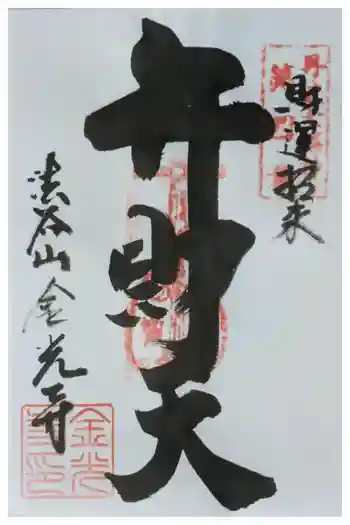 財運招来
弁財天
渋谷山金光寺
金光寺印